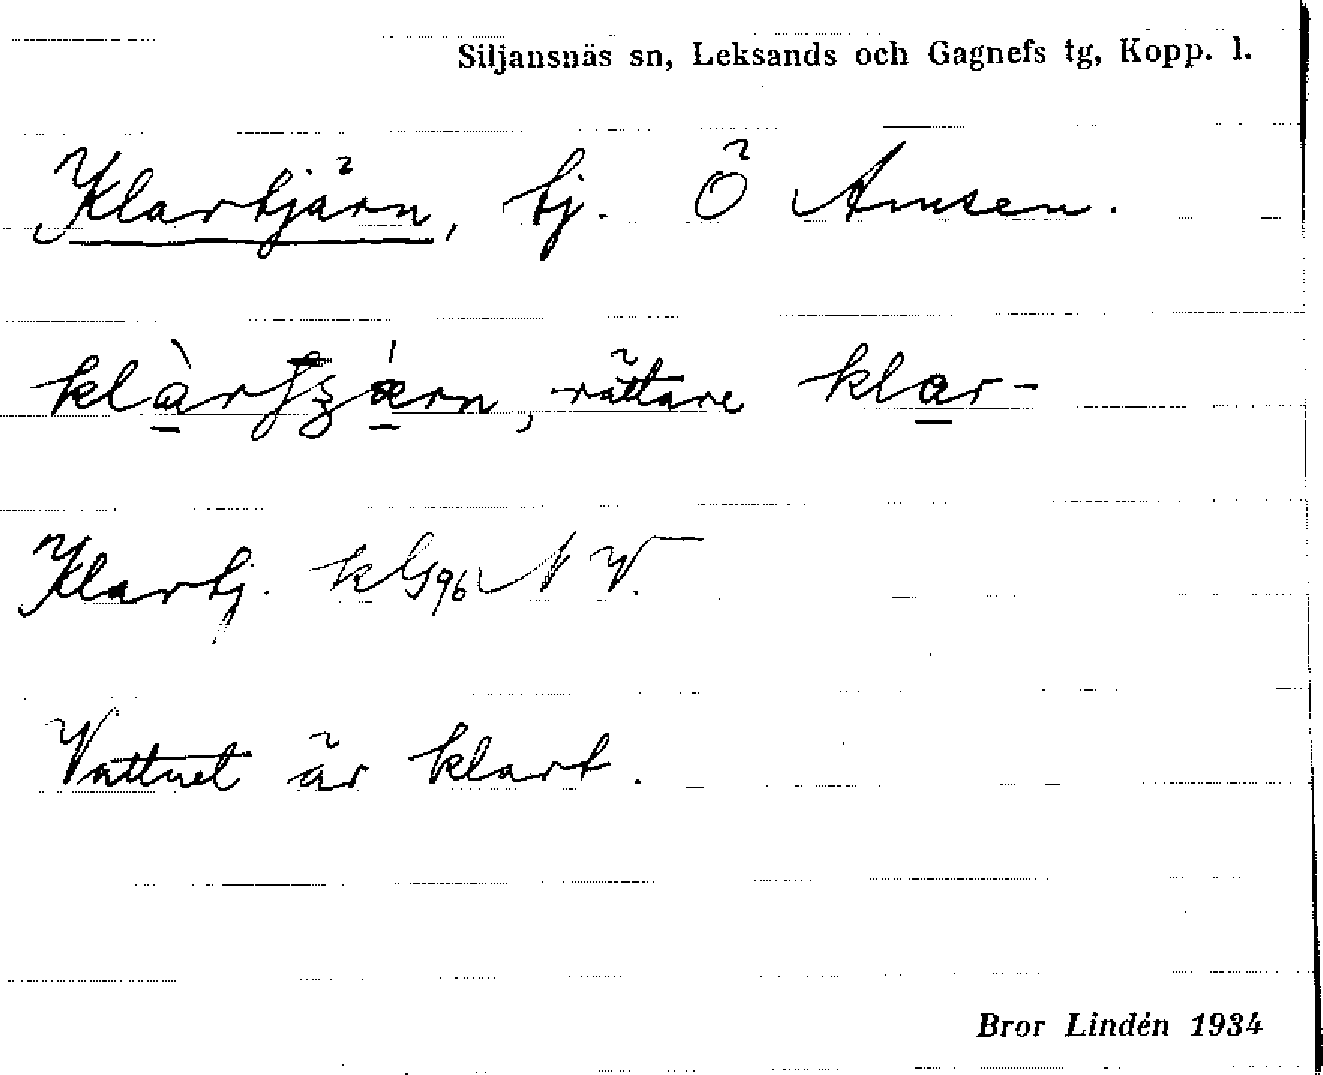 Siljansnäs sn, Leksands och Gagnefs tg, Kopp. l.
Klartjärn, tj. Ö Amsen.
rättare klar-
Klartj. kG96 NV.
Vattnet är klart.
Bror Lindén 1934